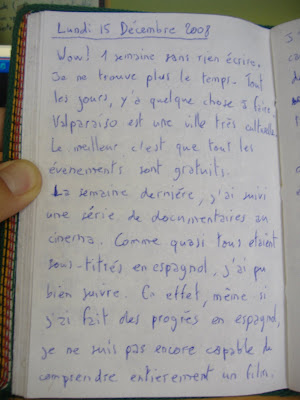 Lundi 15 Décembre 2008
Wow! 1 semaine sans rien écrire.
Je ne trouve plus le temps. Tout
les jours, y'a quelque chose à faire.
Valparaiso est une ville très culturelle.
Le meilleur c'est que tout les
évenements sont gratuits.
La semaine dernière, j'ai suivi
une série de documentaires au
cinema. Comme quasi tous étaient
sous-titrés en espagnol, j'ai pu
bien suivre. En effet, même si
j'ai fait des progrès en espagnol,
je ne suis pas encore capable de
comprendre entierement un film.